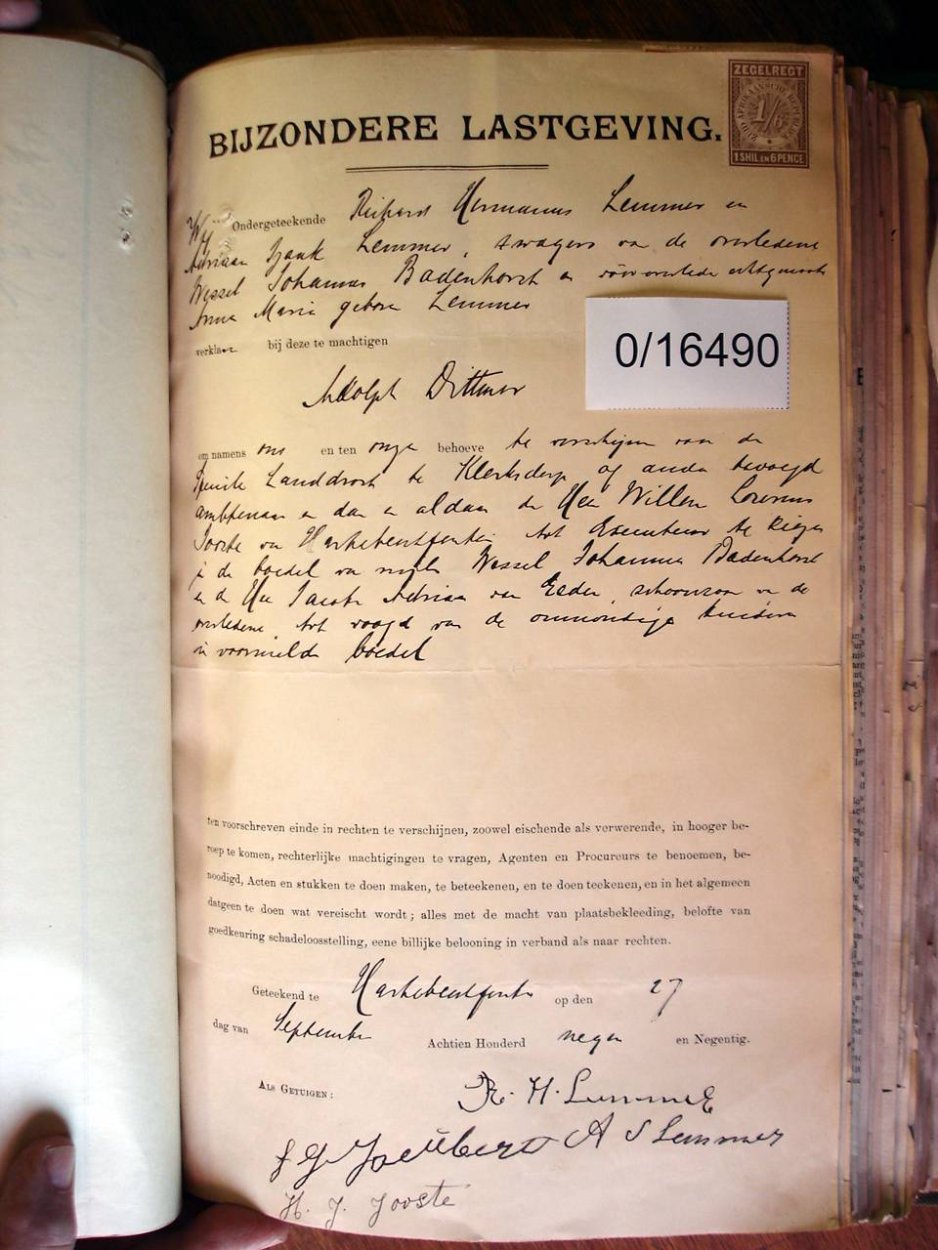 ZEGELREGT
ZUID AFRIKAANSCHE REPUBLIEK
1/6
1 SHIL EN 6 PENCE
BIJZONDERE LASTGEVING.
Wij Ondergeteekende Hermanus Lemmer en
Adriaan Lemmer, swagers van de overledene
Wessel Johannes Badenhorst en vooroverlede echtgenoote
Anna Maria gebore Lemmer
verklaren bij deze te machtigen
0/16490
Adolph Dittmar
om namens ons en ten onze behoeve te verschijnen voor de
Landdrost te Klerksdorp of ander bevoegd
ambtenaar en dan en aldaar de Heer Willem Lourens
Jooste van Hartebeestfontein tot Executeur te kiezen
in de boedel van wijlen Wessel Johannes Badenhorst
en de Heer Jacob Adriaan van Eeden, schoonzoon van de
overledene, tot voogd van de onmondige kinderen
in voormelde boedel
ten voorschreven einde in rechten te verschijnen, zoowel eischende als verwerende, in hooger be-
roep te komen, rechterlijke machtigingen te vragen, Agenten en Procureurs te benoemen, be-
noodigd, Acten en stukken te doen maken, te beteekenen, en te doen teekenen, en in het algemeen
datgeen te doen wat vereischt wordt; alles met de macht van plaatsbekleeding, belofte van
goedkeuring schadeloosstelling, eene billijke belooning in verband als naar rechten.
Geteekend te Hartebeestfontein op den 27
dag van September Achtien Honderd negen en Negentig.
ALS GETUIGEN:
R. H. Lemmer
J G Joubert A S Lemmer
H. J. Jooste